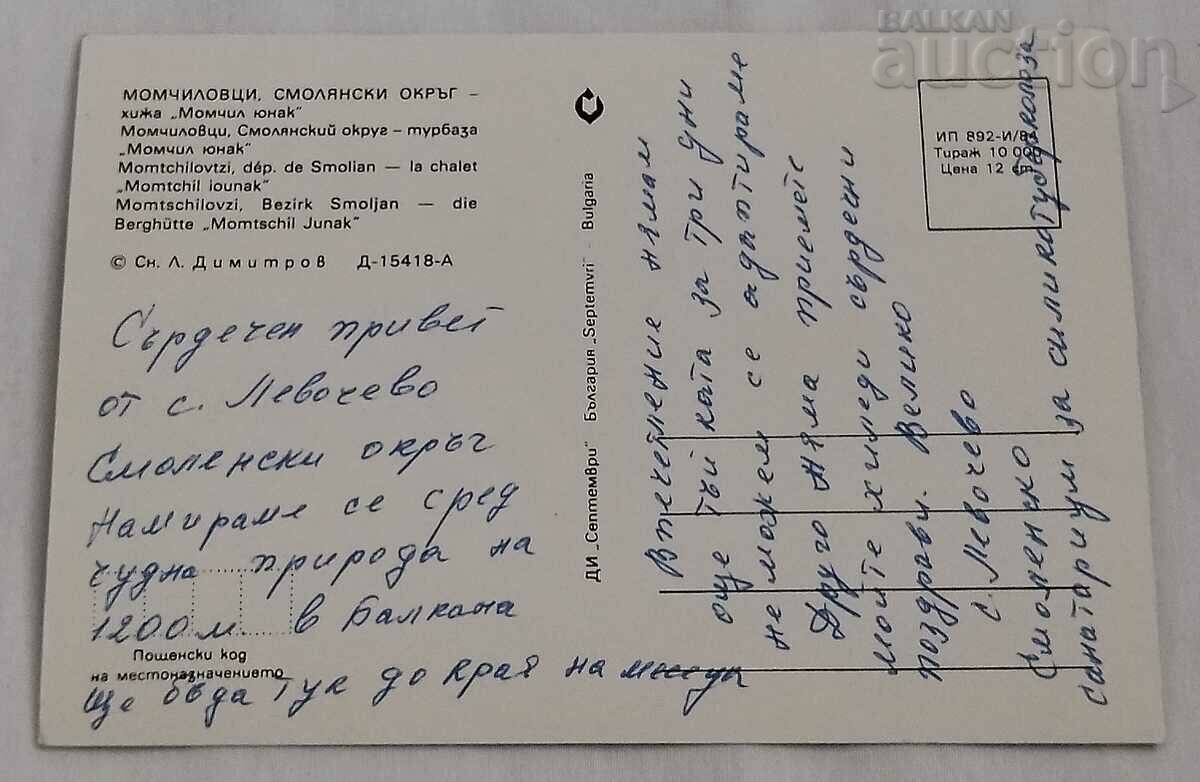 BALKAN
auction
МОМЧИЛОВЦИ, СМОЛЯНСКИ ОКРЪГ –
хижа „Момчил юнак"
Момчиловци, Смолянский округ – турбаза
„Момчил юнак"
Momtchilovtzi, dép. de Smolian — la chalet
„Momtchil Iounak"
Momtschilovzi, Bezirk Smoljan — die
Berghütte „Momtschil Junak"
© Сн. Л. Димитров Д-15418-А
Сърдечен привет
от с. Левочево
Смоленски окръг
Намираме се сред
чудна природа на
1200 м. в Балкана
Пощенски код
на местоназначението
Ще бъда тук до края на месеца
ДИ „Септември" България „Septemvri" - Bulgaria
ИП 892-И/В
Тираж 10 000
Цена 12 ст.
Впечетление нямам
още тъй ката за три дни
не можем се адаптираме
Друго няма приемете
моите хиледи сърдечни
поздрави. Велико
с. Левочево
Смоленско
Санатариум за силикатуберколоза